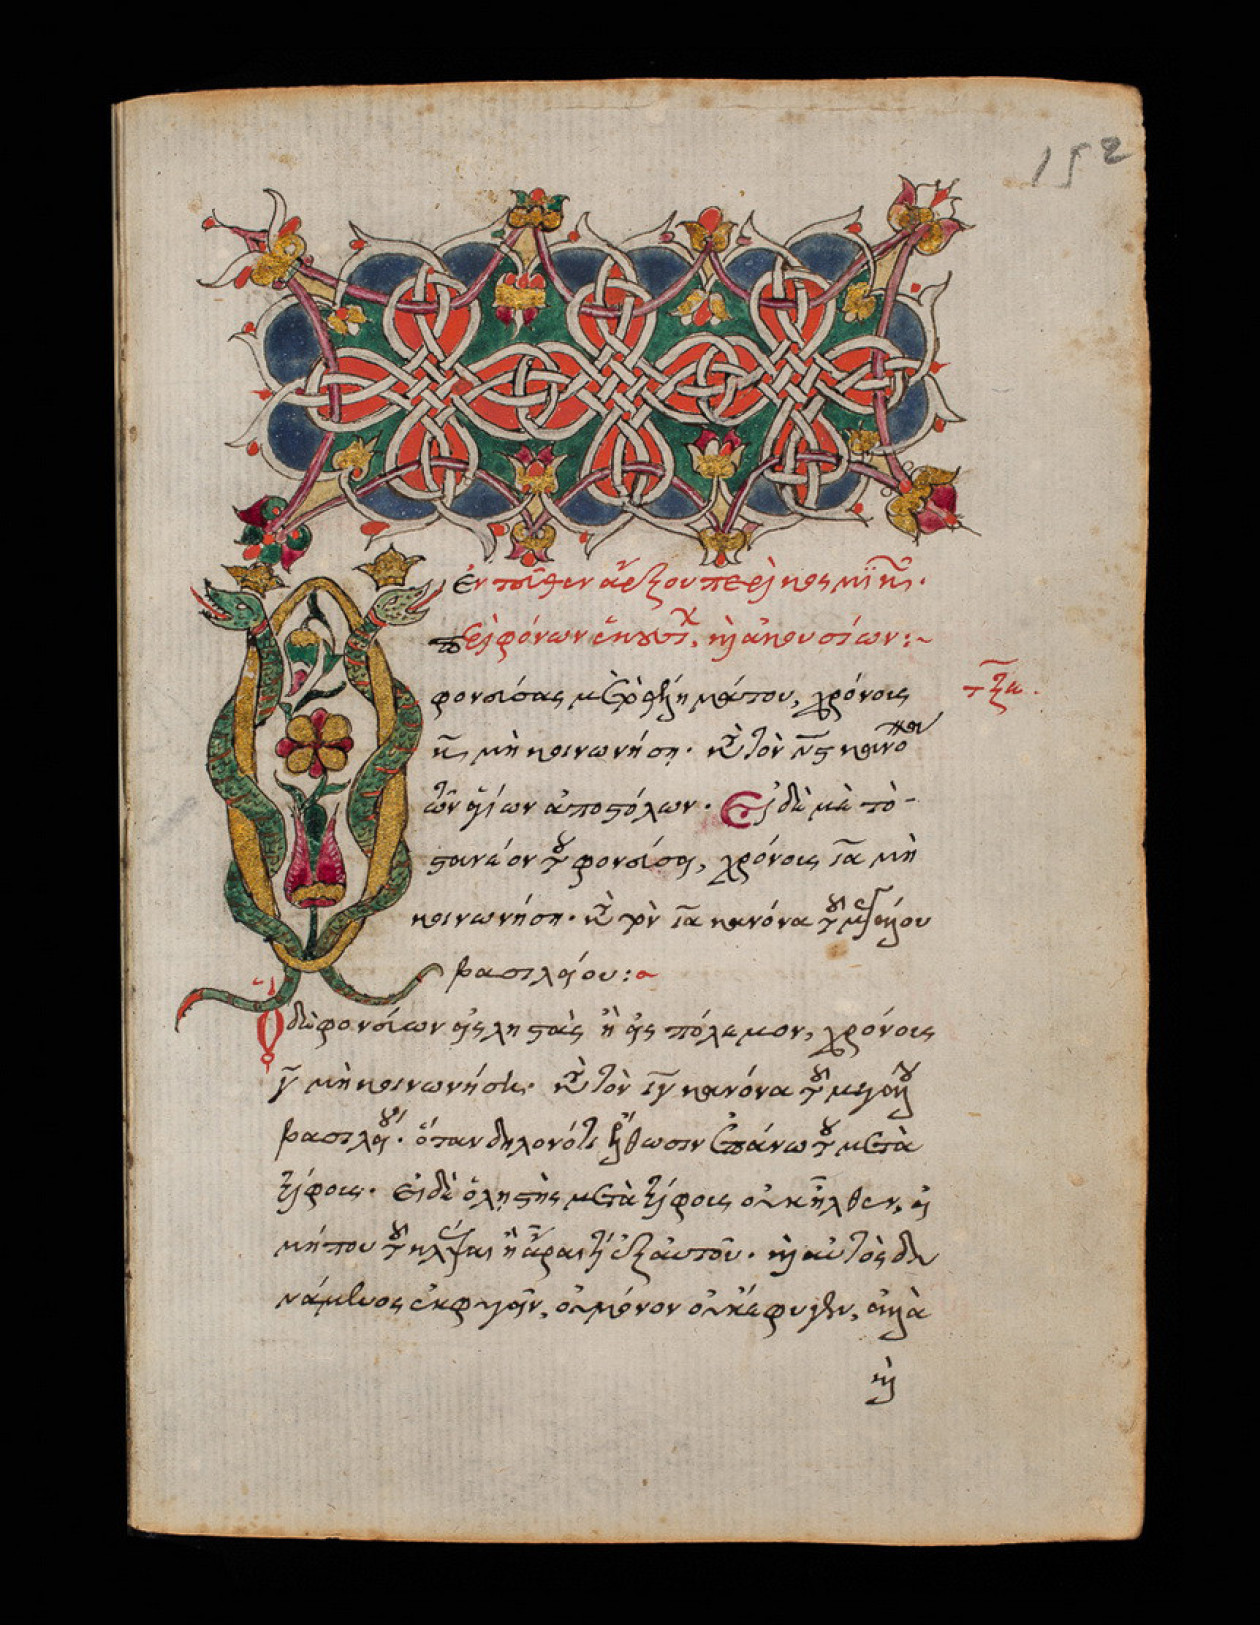 152
Ἐντεῦθεν ἄρξου περὶ τῆς
Περὶ φόνων ἑκουσίων, καὶ ἀκουσίων:~
φονεύσας μετὰ θελήματος του, χρόνους
κ μὴ κοινωνήση. κατὰ τὸν κανόνα
τῶν ἁγίων ἀποστόλων. Εἰ δὲ μετὰ τὸ
φονεύσει, χρόνους ια μὴ
κοινωνήση. κατὰ τὸν ια κανόνα τοῦ μεγάλου
βασιλείου:~
Ὁ δὲ φονεύων εἰς ληστὰς ἢ εἰς πόλεμον, χρόνους
γ μὴ κοινωνήσει. κατὰ τὸν ιγ κανόνα τοῦ μεγάλου
βασιλείου. ὅταν δηλονότι ἔλθωσιν ἐπάνω του μετὰ
ξίφους. Εἰ δὲ ὁ ληστὴς μετὰ ξίφους οὐκ ἦλθεν, εἰ
μήπου τοῦ κλέψαι ἢ ἆραι τί ἐξ αὐτοῦ. καὶ αὐτὸς δυ
νάμενος ἐκφυγεῖν, οὐ μόνον οὐκ ἔφυγεν, ἀλλὰ
καὶ